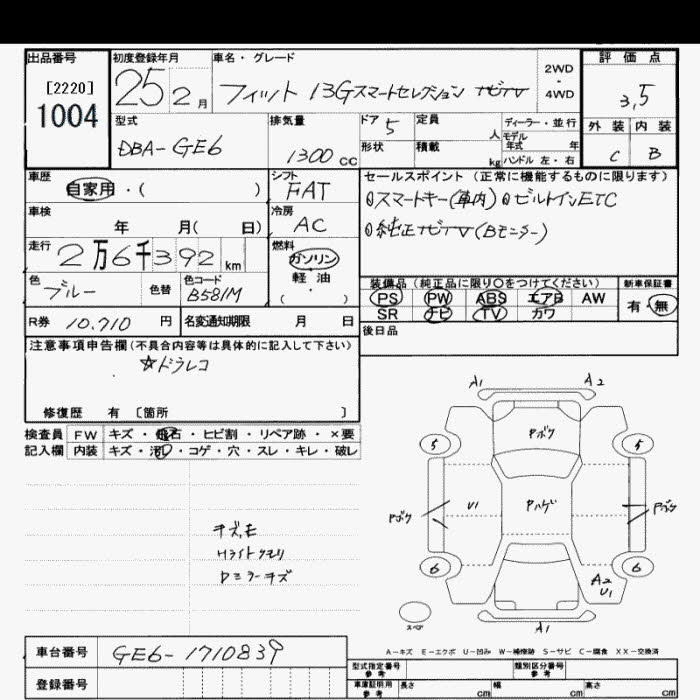 出品番号 初度登録年月 車名・グレード 2WD・4WD 評価点
[2220] 1004 25 2月 フィット 13Gスマートセレクション ナビTV 3,5
型式 排気量 ドア 5 定員 人 ディーラー・並行 外装 内装
DBA-GE6 1300cc 形状 積載 kg モデル年式 年 ハンドル 左・右 C B
車歴 シフト セールスポイント(正常に機能するものに限ります)
自家用・( ) FAT ①スマートキー(車内) ②ビルトインETC
車検 年 月( 日) 冷房 AC ③純正ナビTV(Bモニター)
走行 2万6千392km 燃料 ガソリン 軽油 ・( )
色 ブルー 色替 色コード B581M
装備品(純正品に限り○をつけてください) 新車保証書
PS PW ABS エアB AW 有・無
SR ナビ TV カワ
R券 10.710円 名変通知期限 月 日 後日品
注意事項申告欄(不具合内容等は具体的に記入して下さい)
☆ドラレコ
修復歴 有 [箇所 ]
検査員 FW キズ・飛石・ヒビ割・リペア跡・×要
記入欄 内装 キズ・汚レ・コゲ・穴・スレ・キレ・破レ
A1 A2
Pボケ
5 5
Pボケ U1 Pハゲ Pボケ
6 6
A2
U1
スペア
A1
キズ,モ
Hライトクモリ
Dミラーキズ
A-キズ E-エクボ U-凹み W-補修跡 S-サビ C-腐食 XX-交換済
車台番号 GE6-1710839
登録番号
型式指定番号 参考 類別区分番号 参考
車庫証明用 参考 長さ cm 幅 cm 高さ cm